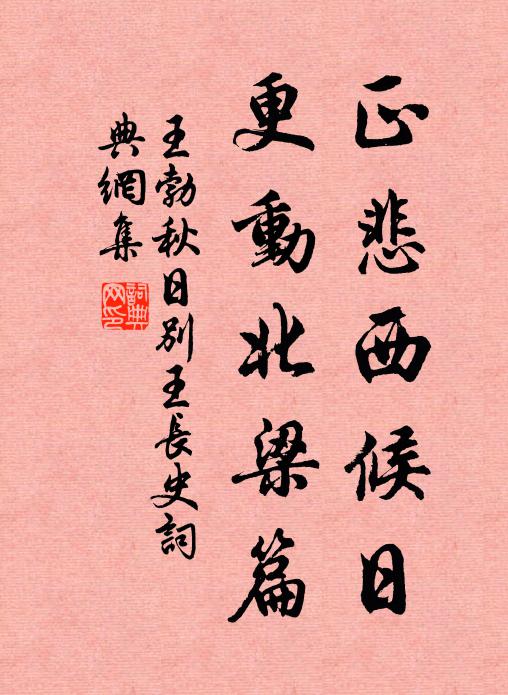 正悲西候日
更動北梁篇
王勃秋日別王長史詞
典網集
詞典
网印